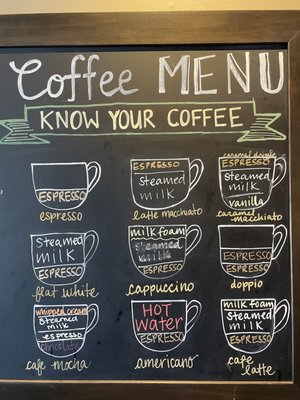 Coffee MENU
KNOW YOUR COFFEE
ESPRESSO
espresso
ESPRESSO
Steamed
milk
latte macchiato
caramel drizzle
ESPRESSO
Steamed
milk
vanilla
caramel
macchiato
Steamed
MILK
ESPRESSO
flat white
milk foam
steamed
milk
ESPRESSO
cappuccino
ESPRESSO
ESPRESSO
doppio
whipped cream
steamed
milk
espresso
chocolate
cafe mocha
HOT
water
ESPRESSO
americano
milk foam
Steamed
milk
ESPRESSO
cafe
latte